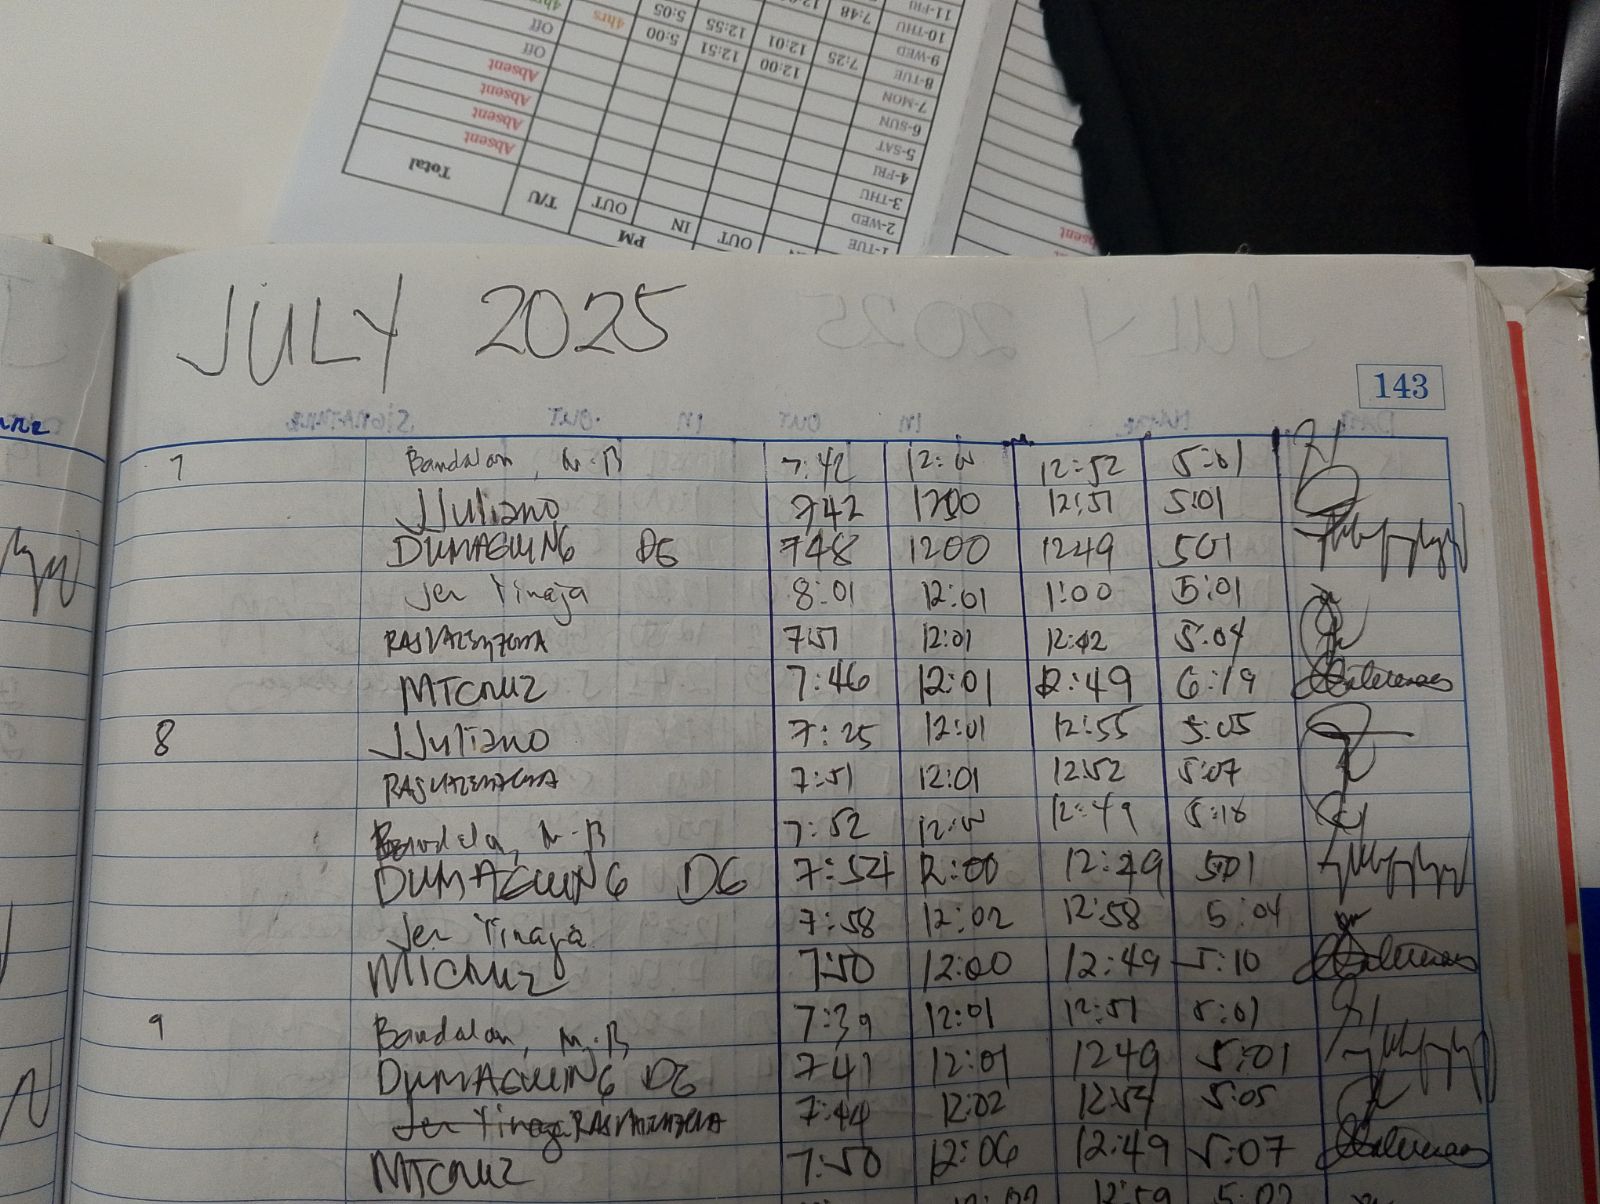 Total T/U OUT IN OUT
PM
Absent 1-TUE
Absent 2-WED
Absent 3-THU
Absent 4-FRI
Off 5-SAT
Off 6-SUN
7-MON
4hrs 5:00 12:51 12:00 8-TUE
5:05 12:55 12:01 7:25 9-WED
7:48 10-THU
11-FRI
JULY 2025
143
7 Bandalan, N.B 7:42 12:00 12:52 5:01
JJuliano 742 1200 12:51 5:01
DUMAGUING DG 748 1200 1249 501
Jer Tinaja 8:01 12:01 1:00 5:01
RASVALENZUELA 7:51 12:01 12:42 5:04
MTCRUZ 7:46 12:01 12:49 6:19
8 JJuliano 7:25 12:01 12:55 5:05
RASVALENZUELA 7:51 12:01 12:52 5:07
Bandala, N.B 7:52 12:00 12:49 5:18
DUMAGUING DG 7:54 12:00 12:49 501
Jer Tinaja 7:58 12:02 12:58 5:04
MTCRUZ 7:50 12:00 12:49 5:10
9 Bandalan, N.B 7:39 12:01 12:51 5:01
DUMAGUING DG 741 12:01 1249 5:01
Jer Tinaja RASVALENZUELA 7:44 12:02 12:54 5:05
MTCRUZ 7:50 12:06 12:49 5:07
12:59 5:02